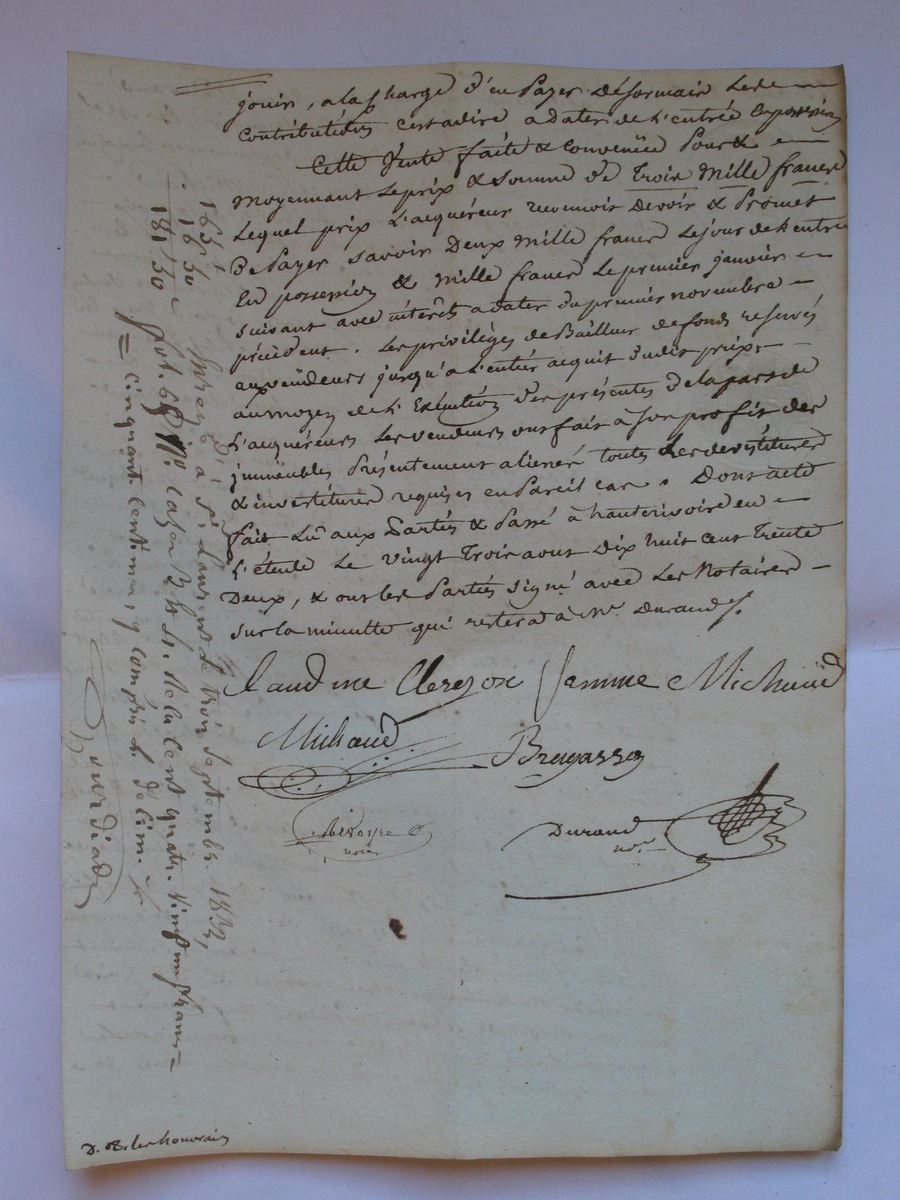 jouir, a la charge d'en Payer désormais les
contributions cest adire a dater de l'entrée en possession
Cette Vente faite & Convenüe Pour &
moyennant Le prix & Somme de Trois Mille francs
Lequel prix L'acquéreur reconnoit Devoir & Promet
De Payer Savoir Deux Mille francs Le jour de l'entrée
En possession & Mille francs Le premier janvier
suivant avec intérêts a dater du premier novembre
précédent. Les privilèges de Bailleur de fonds reservés
aux vendeurs jusqu'a L'entier acquit dudit prix
au moyen de L'Exécution des présentes de la part de
L'acquéreur Les vendeurs ont fait à Son profit des
immeubles Présentement aliénés toutes Les devestitures
& investitures requises en Pareil cas. Dont acte
fait Lû aux Parties & Passé à hauterivoire en
L'étude Le Vingt Trois aout Dix huit Cent Trente
Deux, & ont les Parties Signé avec Les Notaires
sur la minutte qui restera à Me Durand
Claudine Clerejon femme Michaud
Michaud Bruyasson
Durand
nre
165"
16"50
181"50
Enregé à St. Laurent le trois Septembre 1832,
fol. 68 Vo. Case Rt St. Reçu Cent quatre Vingt un francs
Cinquante Centimes, y compris le décime